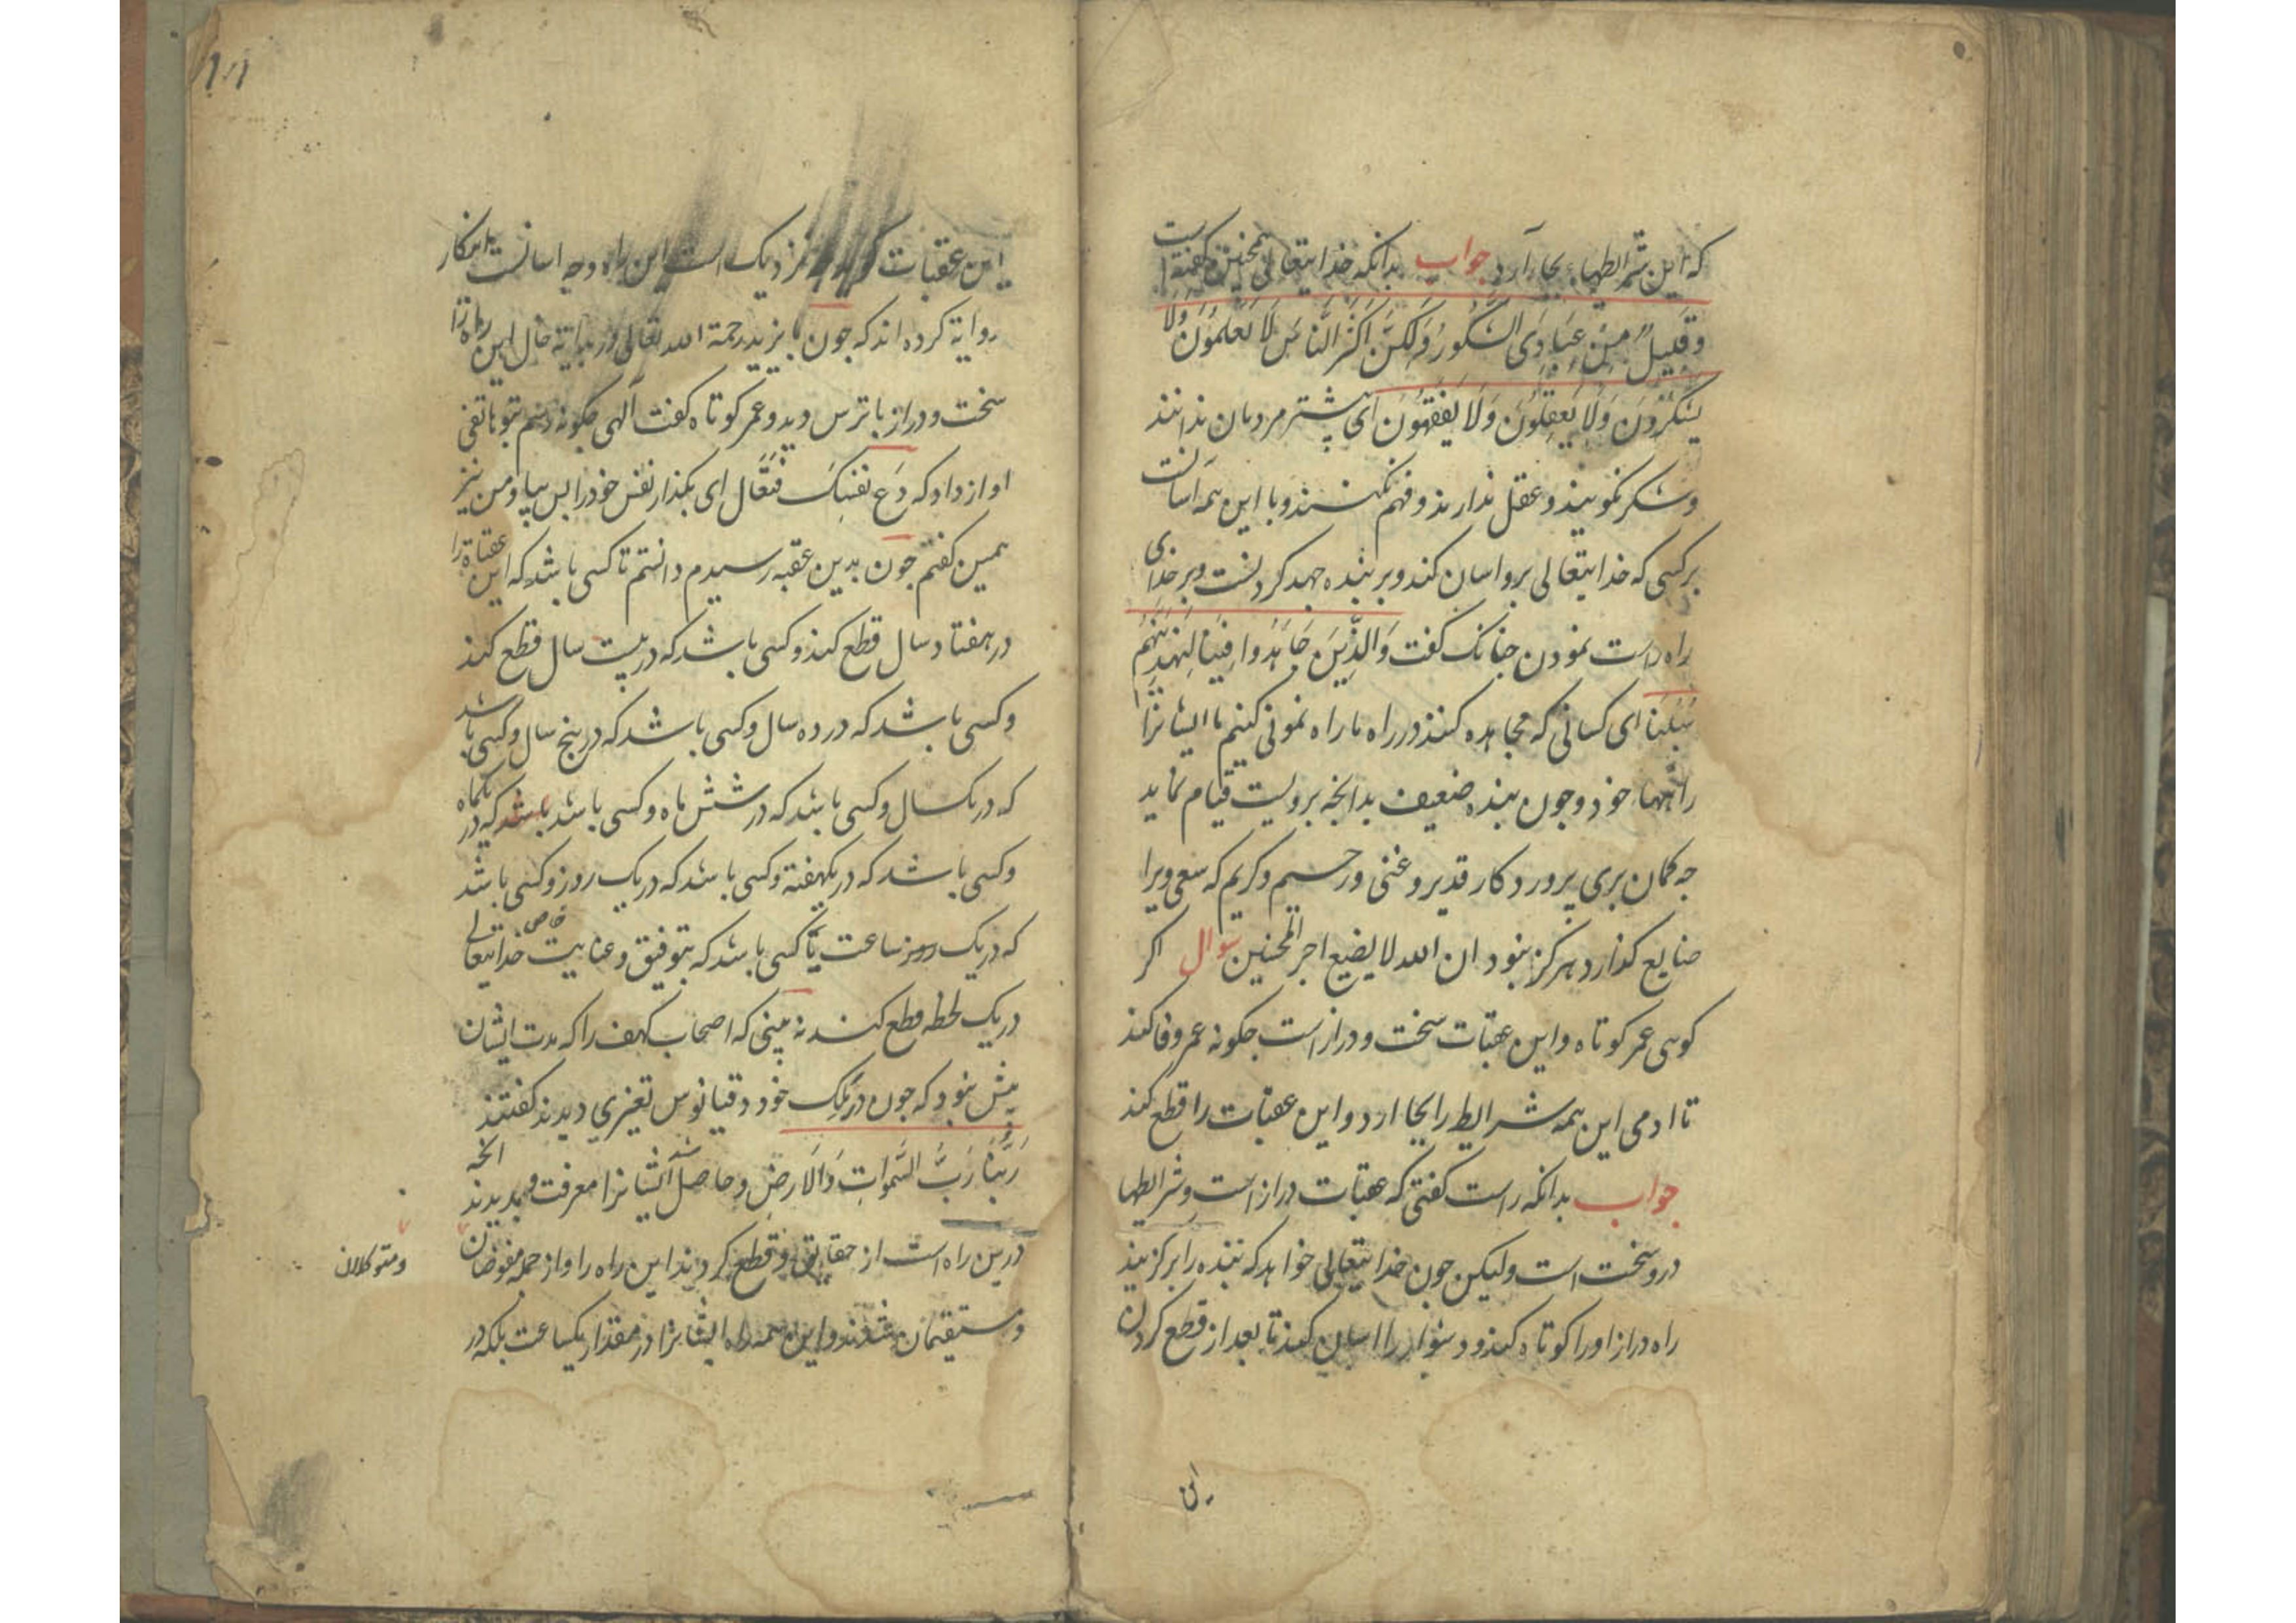 که این شرایطها بجا آرد جواب بدانکه خدایتعالی همچنین گفته است
وَقَلِیلٌ مِنْ عِبَادِیَ الشَّکُورُ وَلَکِنَّ اَکْثَرَ النَّاسِ لَا یَعْلَمُوْنَ وَلَا
یَشْکُرُوْنَ وَلَا یَعْقِلُوْنَ وَلَا یَفْقَهُوْنَ ای بیشتر مردمان ندانند
وشکر نکویند و عقل ندارند و فهم نکنند و با این همه آسانست
برکسی که خدایتعالی برو اسان کند و بر بنده جهد کردنست و بر خدای
راه راست نمودن جنانک کفت وَالَّذِیْنَ جَاهَدُوا فِیْنَا لَنَهْدِیَنَّهُمْ
سُبُلَنَا ای کسانی که مجاهده کنند در راه ما راه نمونی کنیم ما ایشانرا
راهها خود و جون بنده ضعیف بدانجه برویست قیام نماید
جه کمان بری پروردکار قدیر و غنی و رحیم و کریم که سعی ویرا
ضایع کذارد هرکز نبود ان الله لا یضیع اجر المحسنین سوال اکر
کوی عمر کوتاه و این عقبات سخت و دراز است جکونه عمر وفا کند
تا ادمی این همه شرایط را بجا ارد و این عقبات را قطع کند
جواب بدانکه راست کفتی که عقبات دراز است و شرایطها
درو سخت است ولیکن جون خدایتعالی خواهد که بنده را برکزیند
راه دراز او را کوتاه کند و دشوار را اسان کند تا بعد از قطع کردن
این
۱۰۱
این عقبات کوید جه نزدیک است این راه و جه اسانست این کار
روایة کرده اند که جون بایزید رحمة الله تعالی در بدایة حال این راه را
سخت و دراز باترس دید و عمر کوتاه کفت آلهی جکونه رسم بتو هاتفی
اواز داد که دَعْ نَفْسَکَ فَتَعَال ای بکذار نفس خود را پس بیا و من نیز
همین کفتم جون بدین عقبه رسیدم دانستم تا کسی باشد که این عقباة را
در هفتاد سال قطع کند و کسی باشد که در بیست سال قطع کند
وکسی باشد که در ده سال و کسی باشد که در پنج سال و کسی باشد
که در یکسال و کسی باشد که در شش ماه و کسی باشد باشد که در یکماه
وکسی باشد که در یکهفته و کسی باشد که در یک روز و کسی باشد
که در یک روز ساعت تا کسی باشد که بتوفیق و عنایت خاص خدایتعالی
در یک لحظه قطع کند نه بینی که اصحاب کهف را که مدت ایشان
بیش نبود که جون در مَلِک خود دقیانوس تغیری دیدند کفتند
رَبُّنَا رَبُّ السَّمٰوَاتِ وَالْاَرْضِ و حاصل شد ایشانرا معرفت و بدیدند انجه
درین راه است از حقایق و قطع کردند این راه را و از جمله مفوضان
ومتوکلان
ومستقیمان شدند و این همه راه ایشانرا در مقدار یکساعت بلکه در